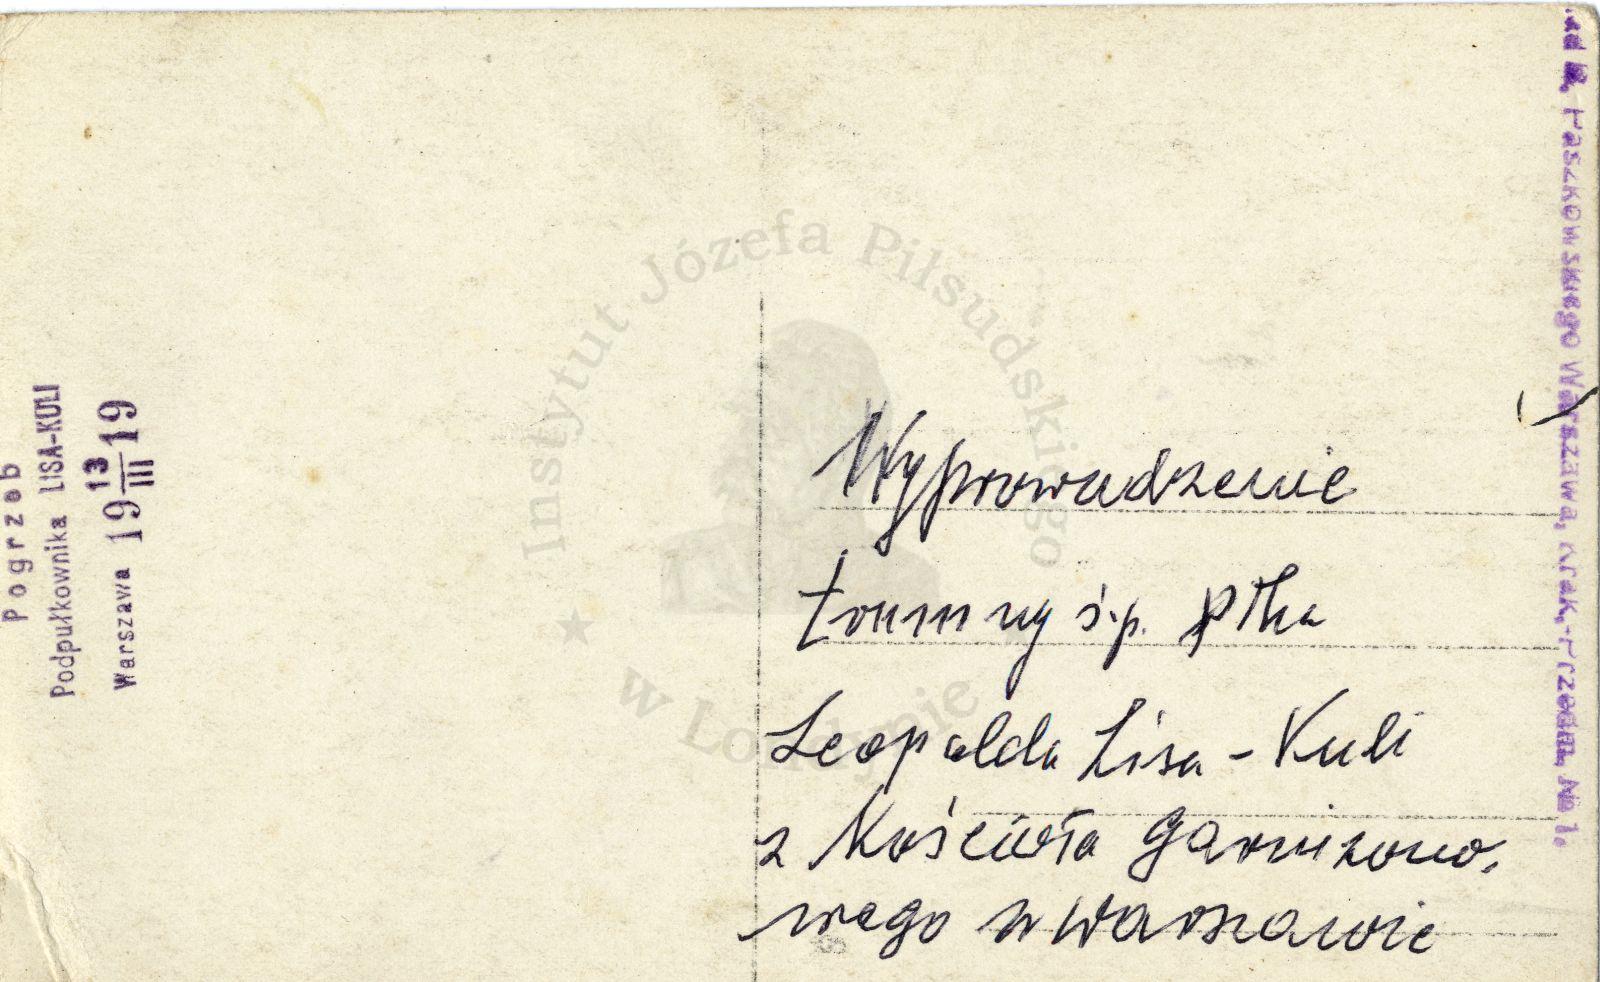 Pogrzeb
Podpułkownika LISA-KULI
Warszawa 19 13/III 19
Instytut Józefa Piłsudskiego
w Londynie
Wyprowadzenie
trumny ś.p. płka
Leopolda Lisa-Kuli
z Kościoła Garnizono-
wego w Warszawie
Paszkowskiego Warszawa, Krak.-Przedm. № 1.